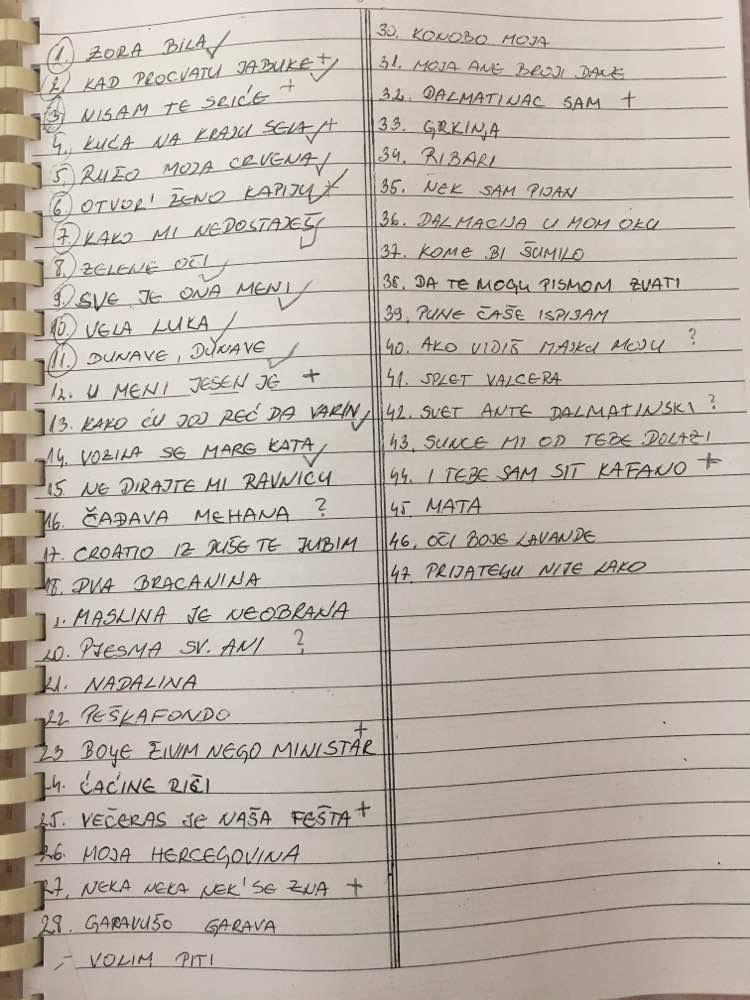 1. ZORA BILA ✓
2. KAD PROCVATU JABUKE + ✓
3. NISAM TE SRIĆE +
4. KUĆA NA KRAJU SELA ✓ +
5. RUŽO MOJA CRVENA ✓
6. OTVOR' ŽENO KAPIJU ✓ +
7. KAKO MI NEDOSTAJEŠ ✓
8. ZELENE OČI ✓
9. SVE JE ONA MENI ✓
10. VELA LUKA ✓
11. DUNAVE, DUNAVE ✓
12. U MENI JESEN JE +
13. KAKO ĆU JOJ REĆ DA VARIN ✓
14. VOZILA SE MARE KATA ✓
15. NE DIRAJTE MI RAVNICU
16. ČAĐAVA MEHANA ?
17. CROATIO IZ DUŠE TE JUBIM
18. DVA BRACANINA
9. MASLINA JE NEOBRANA
20. PJESMA SV. ANI ?
21. NADALINA
22 PEŠKAFONDO
23 BOLJE ŽIVIM NEGO MINISTAR +
24. ĆAĆINE RIČI
25. VEČERAS JE NAŠA FEŠTA +
26. MOJA HERCEGOVINA
27. NEKA NEKA NEK' SE ZNA +
28. GARAVUŠO GARAVA
- VOLIM PITI
30. KONOBO MOJA
31. MOJA ANE BROJI DANE
32. DALMATINAC SAM +
33. GRKINJA
34. RIBARI
35. NEK SAM PIJAN
36. DALMACIJA U MOM OKU
37. KOME BI ŠUMILO
38. DA TE MOGU PISMOM ZVATI
39. PUNE ČAŠE ISPIJAM
40. AKO VIDIŠ MAJKU MOJU ?
41. SPLET VALCERA
42. SVET ANTE DALMATINSKI ?
43. SUNCE MI OD TEBE DOLAZI
44. I TEBE SAM SIT KAFANO +
45. MATA
46. OČI BOJE LAVANDE
47 PRIJATELJU NIJE LAKO